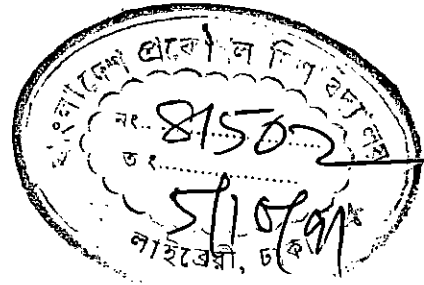 বাংলাদেশ প্রকৌশল বিশ্ববিদ্যালয়
নং.. 81502
তাং
লাইব্রেরী, ঢাকা